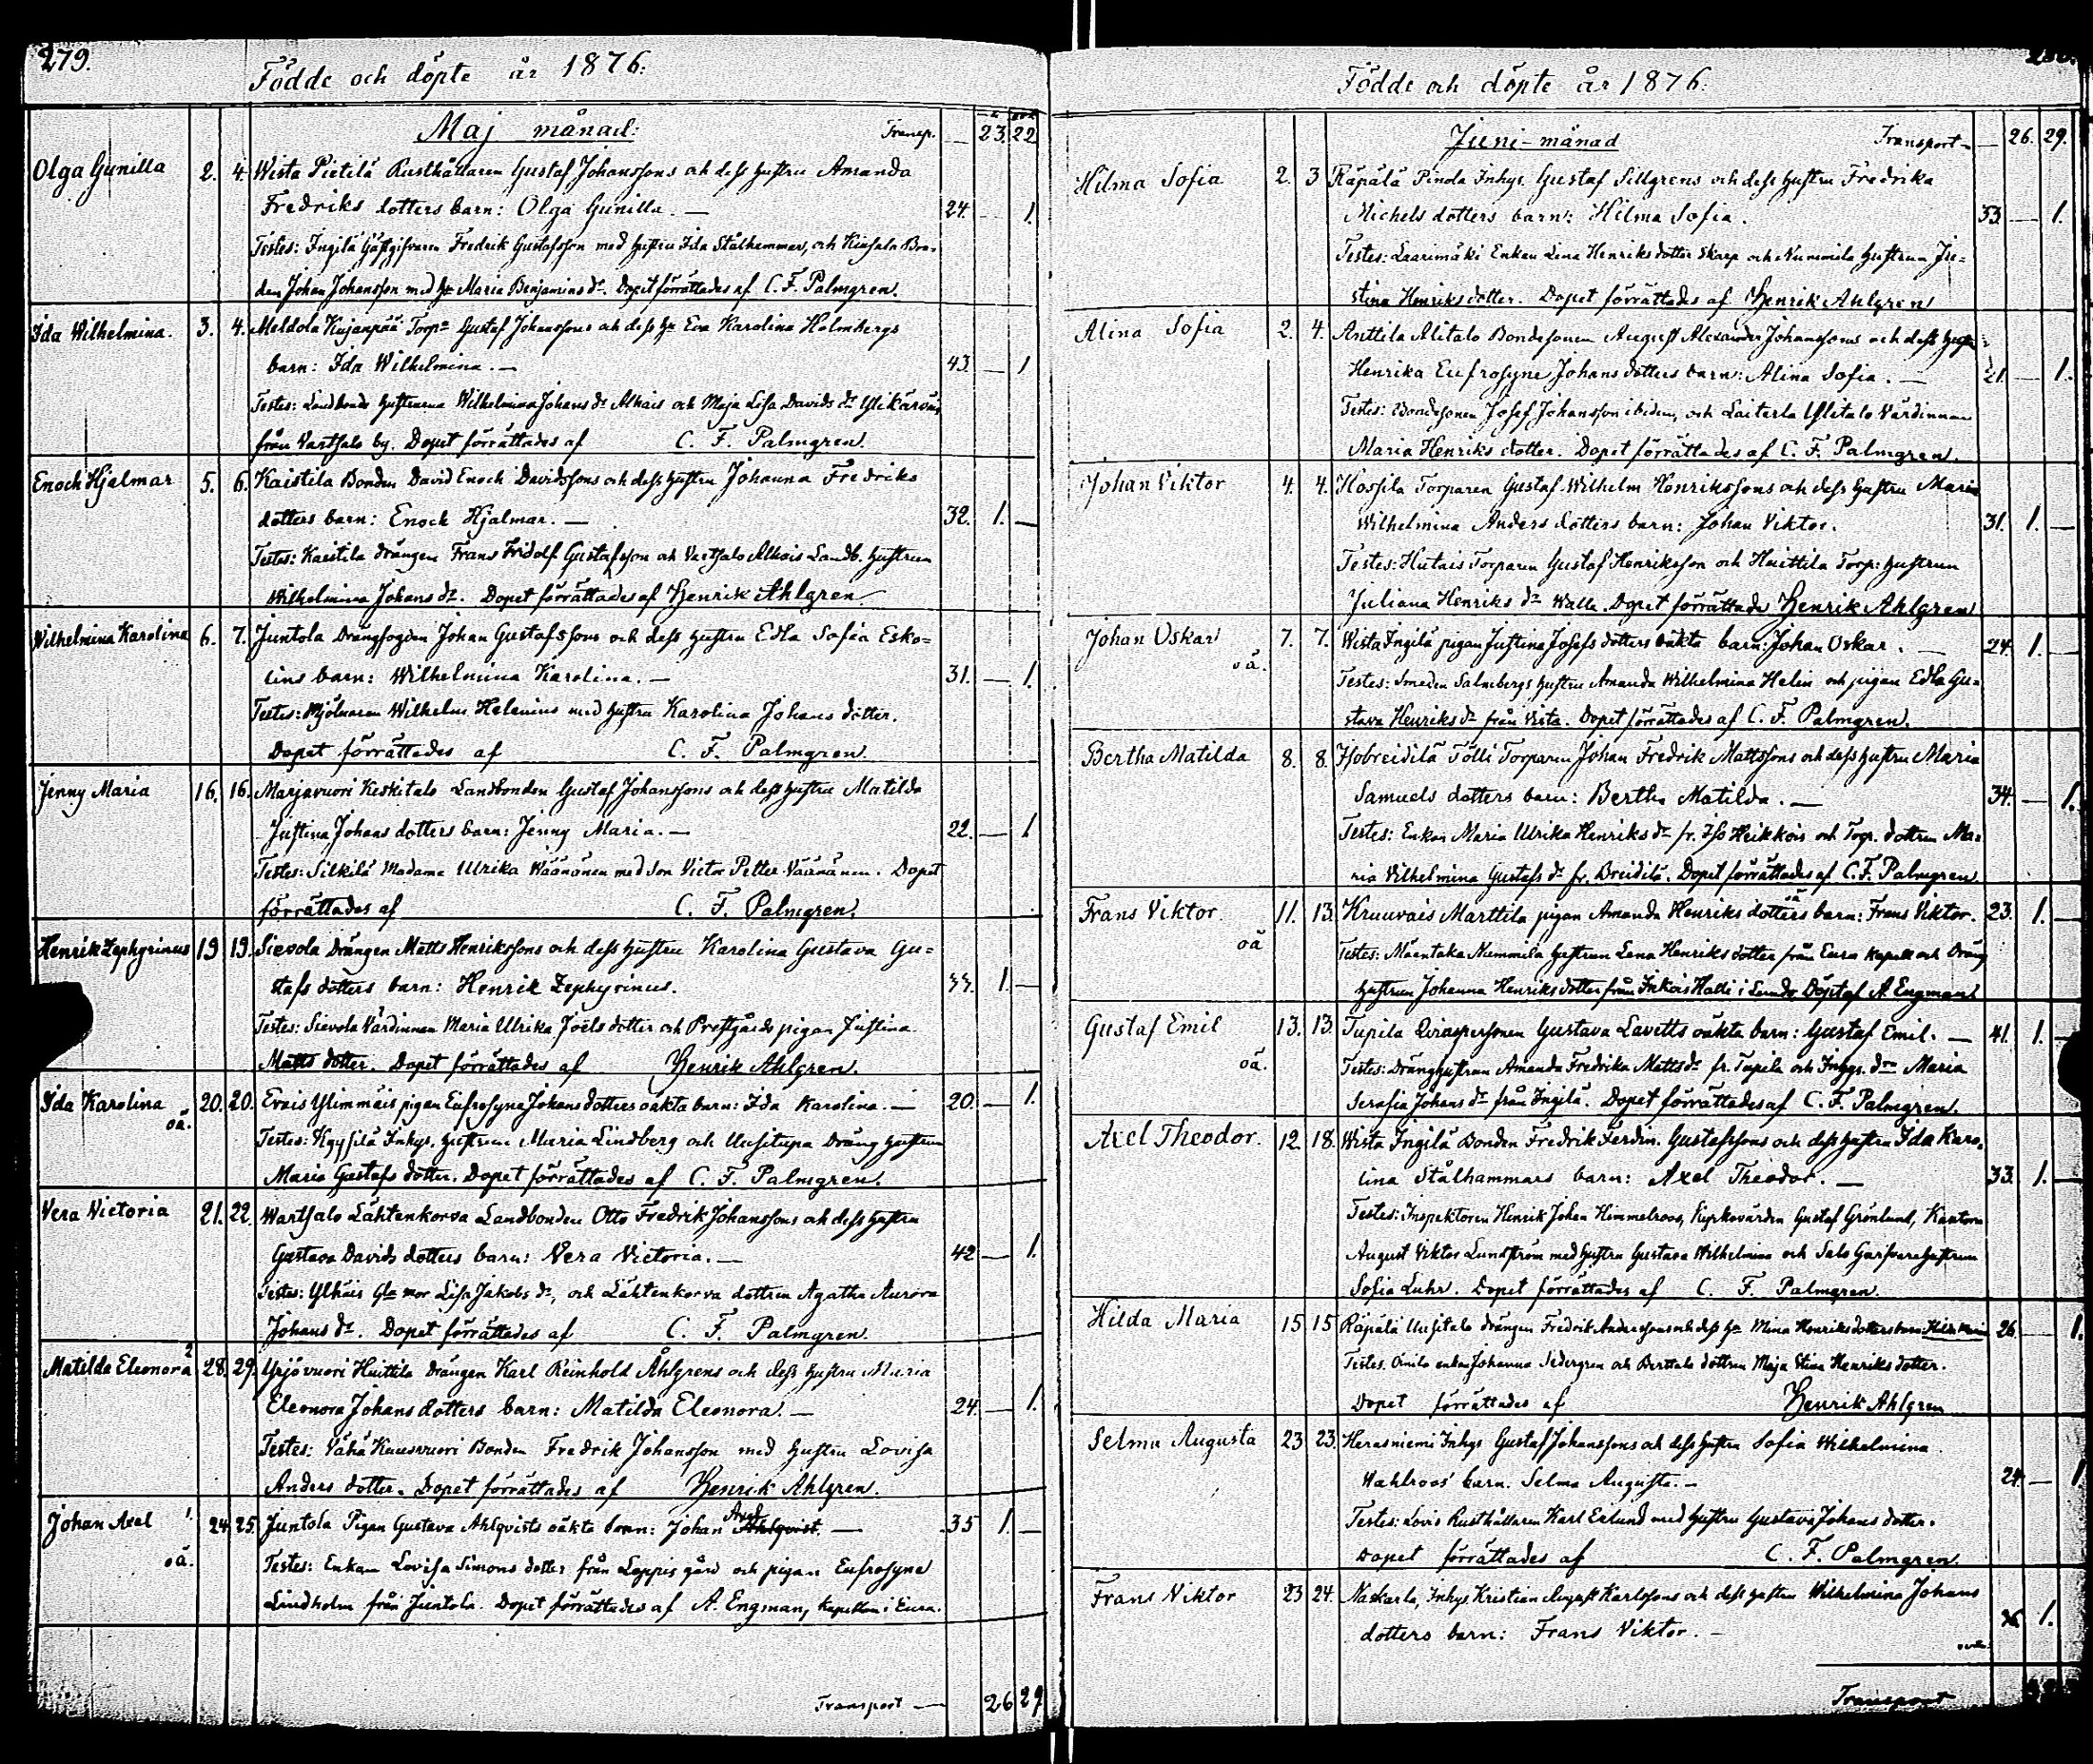 279.
Födde och döpte år 1876.
Maj månad: Transp. — 23. 22
Olga Gunilla 2. 4. Wista Pietilä Rusthållaren Gustaf Johanssons och dess hustru Amanda
Fredriks dotters barn: Olga Gunilla. — 24. — 1.
Testes: Ingilä Gästgifvaren Fredrik Gustafsson med hustru Ida Stålhammar, och Bon-
den Johan Johansson med hu Maria Benjamins dr. Dopet förrättades af C. F. Palmgren.
Ida Wilhelmina. 3. 4. Meldola Kujanpää Torpn Gustaf Johanssons och dess hu Eva Karolina Holmbergs
barn: Ida Wilhelmina. — 43. — 1
Testes: Landbonde hustrurna Wilhelmina Johans dr Alhais och Maja Lisa Davids dr
från Vartsalo by. Dopet förrättades af C. F. Palmgren.
Enoch Hjalmar 5. 6. Kaistila Bonden David Enoch Davidssons och dess hustru Johanna Fredriks
dotters barn: Enoch Hjalmar. — 32. 1. —
Testes: Kaistila drängen Frans Fridolf Gustafsson och Vartsalo Alhais Landb. hustrun
Wilhelmina Johans dr. Dopet förrättades af Henrik Ahlgren
Wilhelmina Karolina 6. 7. Juntola Drängfogden Johan Gustafssons och dess hustru Edla Sofia Esko-
lins barn: Wilhelmina Karolina. — 31. — 1.
Testes: Mjölnaren Wilhelm Helenius med hustru Karolina Johans dotter.
Dopet förrättades af C. F. Palmgren.
Jenny Maria 16. 16. Marjavuori Keskitalo Landbonden Gustaf Johanssons och dess hustru Matilda
Justina Johans dotters barn: Jenny Maria. — 22. — 1
Testes: Silkilä Madame Ulrika Väänänen med son Victor Petter Väänänen. Dopet
förrättades af C. F. Palmgren.
Henrik Zephyrinus 19 19. Sievola Drängen Matts Henrikssons och dess hustru Karolina Gustava Gu-
stafs dotters barn: Henrik Zephyrinus. 1. —
Testes: Sievola Värdinnan Maria Ulrika Joëls dotter och Prestgårds pigan Justina
Matts dotter. Dopet förrättades af Henrik Ahlgren.
Ida Karolina 20. 20. Evais Ylimmäis pigan Eufrosyna Johans dotters oäkta barn: Ida Karolina. — 20. — 1.
oä.
Testes: Inhys. hustrun Maria Lindberg och Uusitupa Dräng hustrun
Maria Gustafs dotter. Dopet förrättades af C. F. Palmgren.
Vera Victoria 21. 22. Wartsalo Lähtenkorva Landbonden Otto Fredrik Johanssons och dess hustru
Gustava Davids dotters barn: Vera Victoria. — 42 — 1.
Testes: Lisa Jakobs dr, och Lähtenkorva dottren Agatha Aurora
Johans dr. Dopet förrättades af C. F. Palmgren.
Matilda Eleonora 2 28. 29. Yrjövuori Huittila Drängen Karl Reinhold Åhlgrens och dess hustru Maria
Eleonora Johans dotters barn: Matilda Eleonora. — 24. — 1.
Testes: Vähä Kuusvuori Bonden Fredrik Johansson med hustru Lovisa
Anders dotter. Dopet förrättades af Henrik Ahlgren.
Johan Axel 1. 24. 25. Juntola Pigan Gustava Ahlqvists oäkta barn: Johan Axel Ahlqvist. — 35 1. —
oä.
Testes: Enkan Lovisa Simons dotter från Loppis gård och pigan Eufrosyne
Lindholm från Juntola. Dopet förrättades af A. Engman, kapellan i Eura.
Transport — 26 29
Födde och döpte år 1876.
Juni-månad Transport — 26. 29.
Hilma Sofia 2. 3 Räpälä Pinola Inhys. Gustaf Sillgrens och dess hustru Fredrika
Michels dotters barn: Hilma Sofia. 33. — 1.
Testes: Laarimäki Enkan Lena Henriks dotter Skarp och Nummila hustrun Ju-
stina Henriks dotter. Dopet förrättades af Henrik Ahlgren
Alina Sofia 2. 4. Anttila Alitalo Bondesonen August Alexander Johanssons och dess hustru
Henrika Eufrosyne Johans dotters barn: Alina Sofia. — 21. — 1.
Testes: Bondesonen Josef Johansson ibidem, och Laiterla Ylitalo Värdinnan
Maria Henriks dotter. Dopet förrättades af C. F. Palmgren.
Johan Viktor 4. 4. Hossila Torparen Gustaf Wilhelm Henrikssons och dess hustru Maria
Wilhelmina Anders dotters barn: Johan Viktor. 31. 1. —
Testes: Hutais Torparen Gustaf Henriksson och Huittila Torp. hustrun
Juliana Henriks dr Walla. Dopet förrättade Henrik Ahlgren
Johan Oskar 7. 7. Wista Ingilä pigan Justina Josefs dotters oäkta barn: Johan Oskar. — 24. 1. —
oä.
Testes: Smeden Salmbergs hustru Amanda Wilhelmina Helin och pigan Edla Gu-
stava Henriks dr från Vista. Dopet förrättades af C. F. Palmgren.
Bertha Matilda 8. 8. Isobreidilä Tölli Torparen Johan Fredrik Mattssons och dess hustru Maria
Samuels dotters barn: Bertha Matilda. — 34. — 1.
Testes: Enkan Maria Ulrika Henriks dr fr. Iso Heikkois och Torp. dottren Ma-
ria Vilhelmina Gustafs dr fr. Breidilä. Dopet förrättades af C. F. Palmgren
Frans Viktor. 11. 13. Kruuvais Marttila pigan Amanda Henriks dotters oä barn: Frans Viktor. 23. 1. —
oä
Testes: Mäentaka Nummila hustrun Lena Henriks dotter från Eura kapell och Dräng
hustrun Johanna Henriks dotter från Halli i Döpt af A. Engman.
Gustaf Emil 13. 13. Tupila Qvinspersonen Gustava Lavitts oäkta barn: Gustaf Emil. — 41. 1. —
oä.
Testes: Dränghustrun Amanda Fredrika Matts dr fr. Tupila och Inhys. drn Maria
Serafia Johans dr från Ingilä. Dopet förrättades af C. F. Palmgren.
Axel Theodor. 12. 18. Wista Ingilä Bonden Fredrik Ferdin. Gustafssons och dess hustru Ida Karo-
lina Stålhammars barn: Axel Theodor. — 33. 1. —
Testes: Inspektoren Henrik Johan Himmelroos, Kyrkovärden Gustaf Grönlund, Kantorn
August Viktor Lundström med hustru Gustava Wilhelmina och Salo Garfvarehustrun
Sofia Luhr. Dopet förrättades af C. F. Palmgren.
Hilda Maria 15 15 Räpälä Uusitalo drängen Fredrik Anderssons och dess hu Mina Henriks dotters barn: Hilda Maria 26. — 1.
Testes: enkan Johanna Sedergren och Berttala dottren Maja Stina Henriks dotter.
Dopet förrättades af Henrik Ahlgren
Selma Augusta 23 23. Herasniemi Inhys Gustaf Johanssons och dess hustru Sofia Wilhelmina
Wahlroos' barn. Selma Augusta. — 24. — 1
Testes: Lovis Rusthållaren Karl Erlund med hustru Gustava Johans dotter.
Dopet förrättades af C. F. Palmgren
Frans Viktor 23 24. Naskarla, Inhys. Kristian August Karlssons och dess hustru Wilhelmina Johans
dotters barn: Frans Viktor. — 1.
Transport